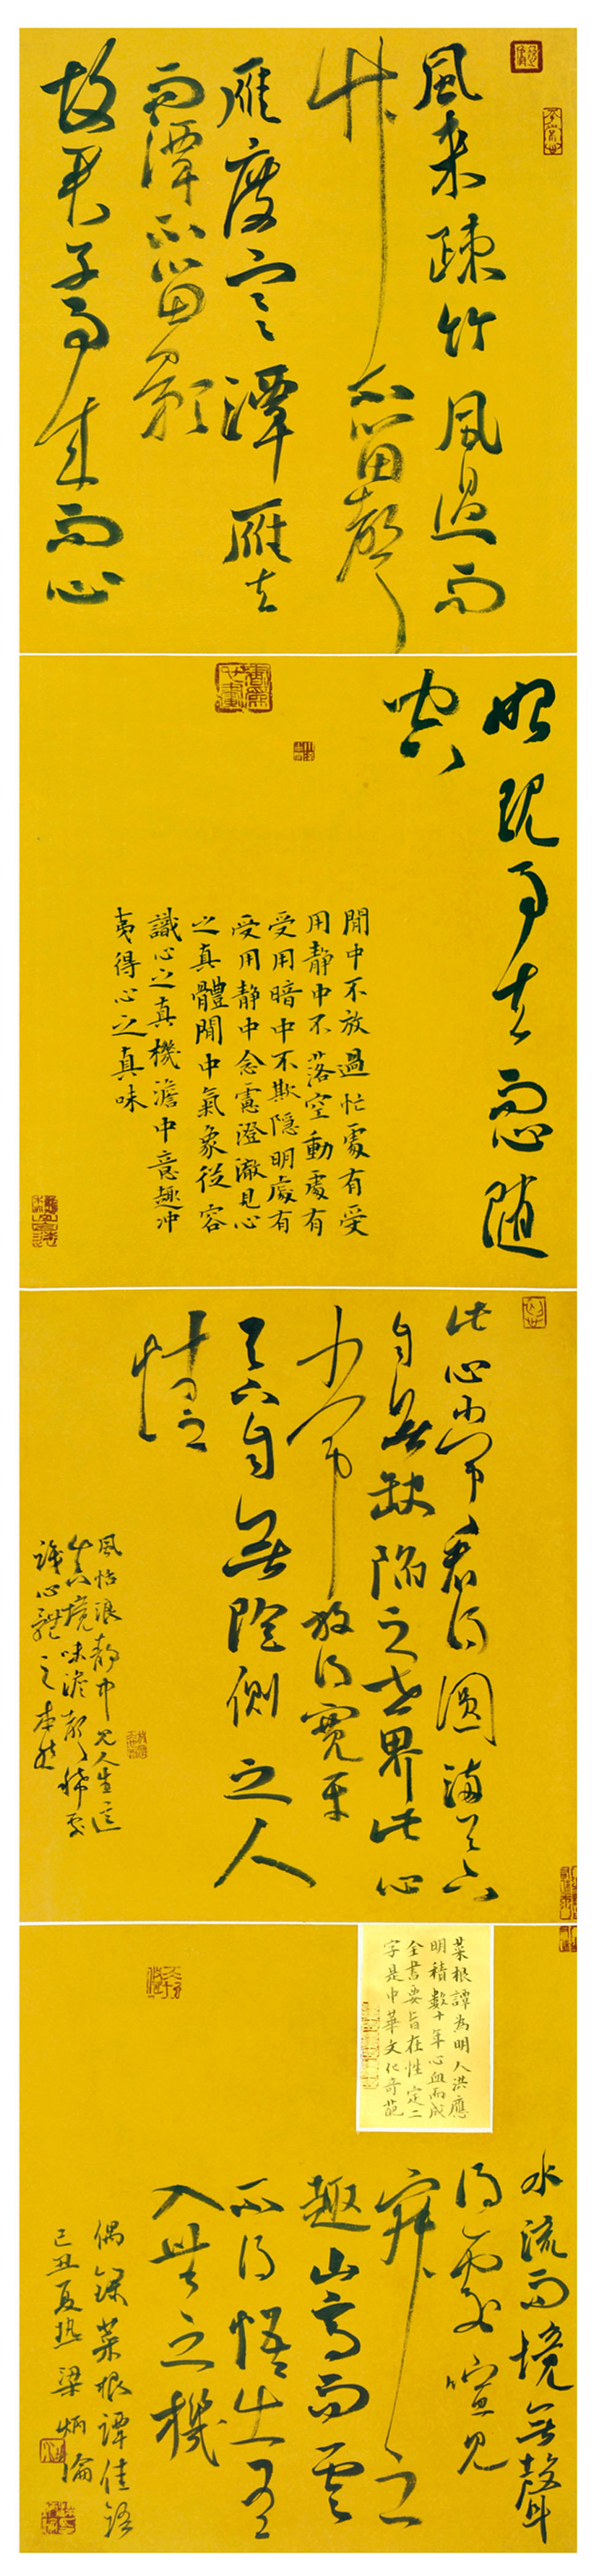 風來疎竹風過而
竹不留聲
雁度寒潭雁去
而潭不留影
故君子事來而心
始現事去而心隨
空
閒中不放過忙處有受
用靜中不落空動處有
受用暗中不欺隱明處有
受用靜中念慮澄澈見心
之真體閒中氣象從容
識心之真機澹中意趣冲
夷得心之真味
此心常看得圓滿天下
自無缺陷之世界此心
常放得寬平
天下自無險側之人
情
風恬浪靜中見人生之
真境味澹聲稀處
識心體之本然
菜根譚為明人洪應
明積數十年心血而成
全書要旨在性定二
字是中華文化奇葩
水流而境無聲
得處喧見
寂之
趣山高而雲
不碍悟出有
入無之機
偶錄菜根譚佳語
己丑夏熱梁炳倫